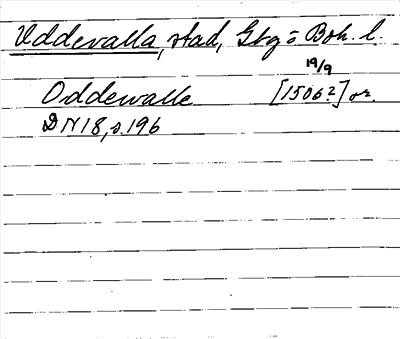 Uddevalla, stad, Gbg o Boh. l.
19/9
Oddewalle [1506?] or.
DN 18, s. 196